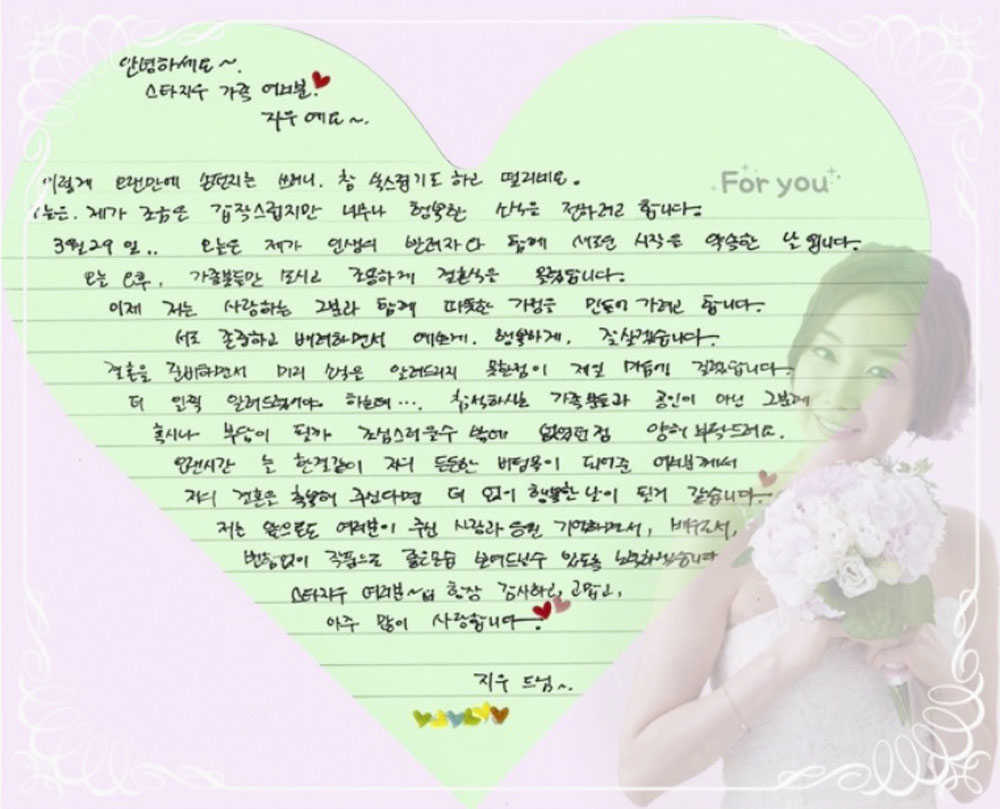 안녕하세요~.
스타지우 가족 여러분.
지우예요~.
이렇게 오랜만에 손편지를 쓰려니. 참 쑥스럽기도 하고 떨리네요.
For you
오늘은. 제가 조금은 갑작스럽지만 너무나 행복한 소식을 전하려고 합니다.
3월 29일.. 오늘은 제가 인생의 반려자와 함께 새로운 시작을 약속한 날입니다.
오늘 오후, 가족분들만 모시고 조용하게 결혼식을 올렸습니다.
이제 저는 사랑하는 그분과 함께 따뜻한 가정을 만들어 가려고 합니다.
서로 존중하고 배려하면서 예쁘게. 행복하게. 잘살겠습니다.
결혼을 준비하면서 미리 소식을 알려드리지 못한점이 제일 마음에 걸렸습니다.
더 일찍 알려드렸어야 하는데…. 참석하시는 가족분들과 공인이 아닌 그분께
혹시나 부담이 될까 조심스러울수 밖에 없었던점 양해 부탁드려요.
오랜시간 늘 한결같이 저의 든든한 버팀목이 되어준 여러분께서
저의 결혼을 축복해 주신다면 더 없이 행복한 날이 될거 같습니다.
저는 앞으로도 여러분이 주신 사랑과 응원 기억하면서, 배우로서,
변함없이 작품으로 좋은모습 보여드릴수 있도록 노력하겠습니다
스타지우 여러분~ 항상 감사하고, 고맙고,
아주 많이 사랑합니다~.
지우 드림~.